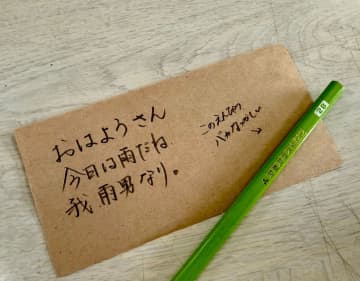 おはようさん
今日は雨だね
我 雨男なり。
このえんぴつ
バカなつかしい
2B